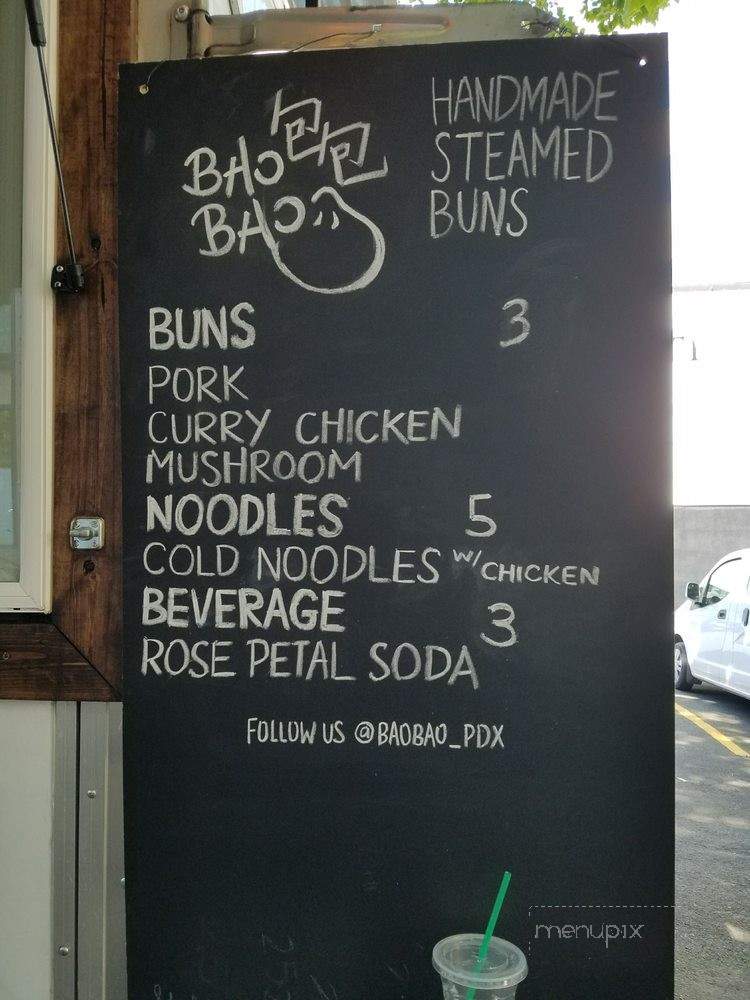 BAO 包包
BAO
HANDMADE
STEAMED
BUNS
BUNS 3
PORK
CURRY CHICKEN
MUSHROOM
NOODLES 5
COLD NOODLES W/CHICKEN
BEVERAGE 3
ROSE PETAL SODA
FOLLOW US @BAOBAO_PDX
menupix